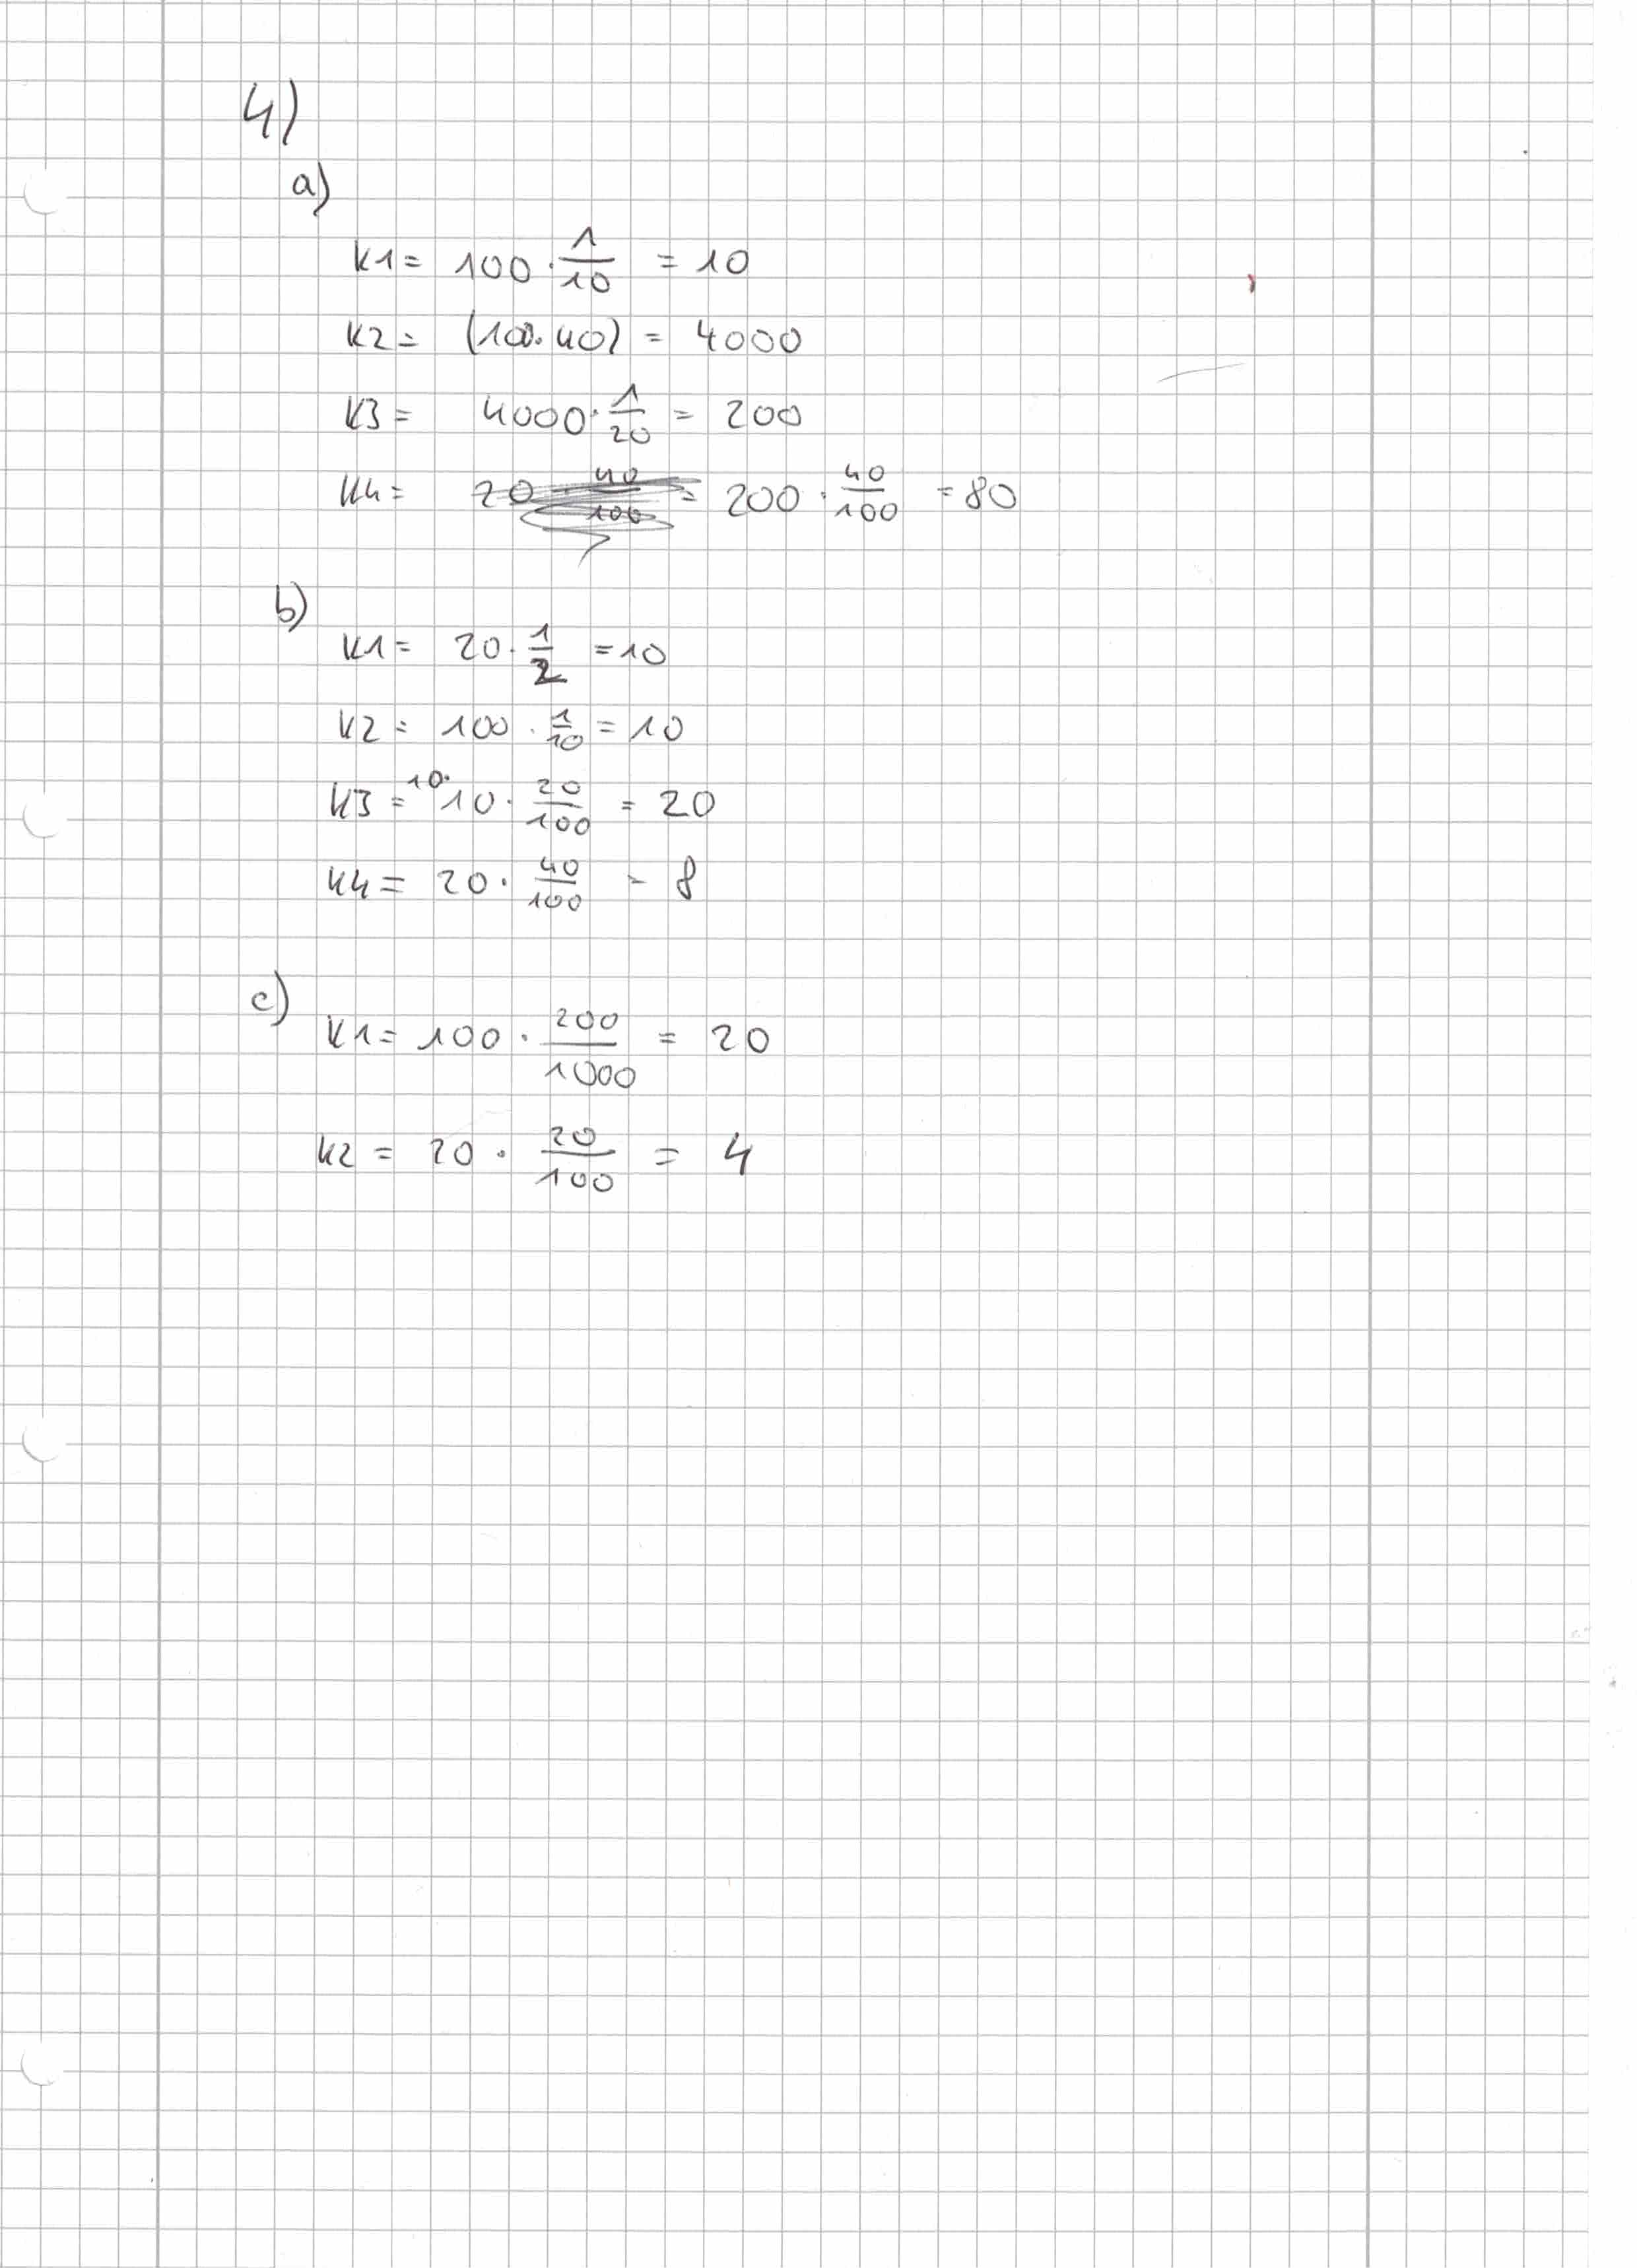 4)
a)
K1 = 100 · 1/10 = 10
K2 = (100 · 40) = 4000
K3 = 4000 · 1/20 = 200
K4 = 20 · 40/100 = 200 · 40/100 = 80
b)
K1 = 20 · 1/2 = 10
K2 = 100 · 1/10 = 10
K3 = 10 · 10 · 20/100 = 20
K4 = 20 · 40/100 = 8
c)
K1 = 100 · 200/1000 = 20
K2 = 20 · 20/100 = 4